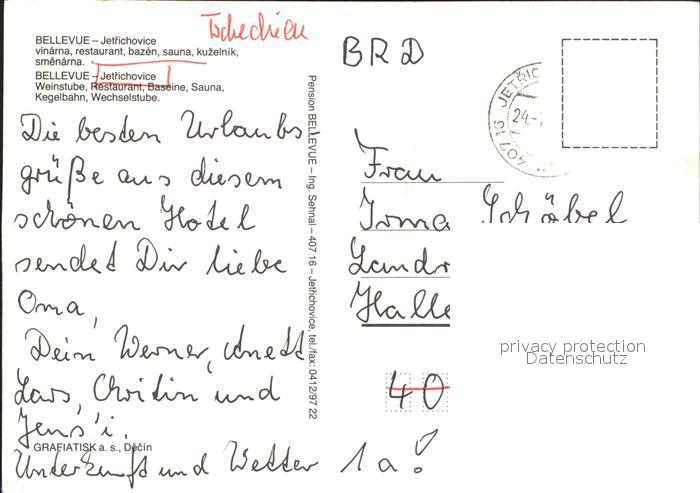 Tschechien
BELLEVUE – Jetřichovice
vinárna, restaurant, bazén, sauna, kuželník,
směnárna.
BELLEVUE – Jetřichovice
Weinstube, Restaurant, Baseine, Sauna,
Kegelbahn, Wechselstube.
Die besten Urlaubs
grüße aus diesem
schönen Hotel
sendet Dir liebe
Oma,
Dein Werner, Anett
Lars, Christin und
Jens'i.
GRAFIATISK a. s., Děčín
Unterkunft und Wetter 1a!
Pension BELLEVUE – Ing. Sehnal – 407 16 – Jetřichovice, tel./fax: 0412/97 22
BRD
JETŘIC
24.-
407 16
Frau
Irma Schäbel
Landr
Halle
40
privacy protection
Datenschutz